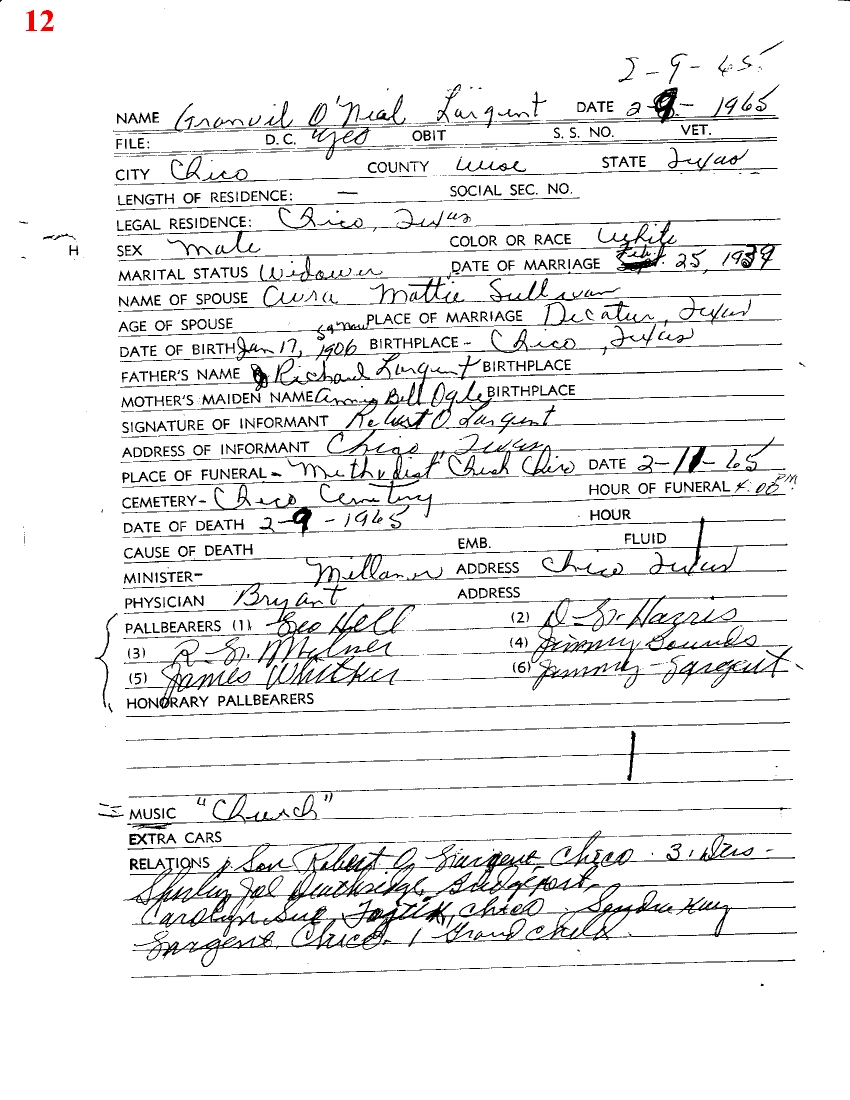 12
2-9-65
NAME Granvil O'Neal Largent DATE 2-9-1965
FILE: D.C. yes OBIT S. S. NO. VET.
CITY Chico COUNTY Wise STATE Texas
LENGTH OF RESIDENCE: — SOCIAL SEC. NO.
LEGAL RESIDENCE: Chico, Texas
H
SEX Male COLOR OR RACE White
MARITAL STATUS Widower DATE OF MARRIAGE Feb. 25, 1939
NAME OF SPOUSE Mattie Sullivan
AGE OF SPOUSE PLACE OF MARRIAGE Decatur, Texas
DATE OF BIRTH Jan 17, 1906 BIRTHPLACE - Chico, Texas
FATHER'S NAME Richard Largent BIRTHPLACE
MOTHER'S MAIDEN NAME Bell Ogle BIRTHPLACE
SIGNATURE OF INFORMANT Robert O. Largent
ADDRESS OF INFORMANT Chico, Texas
PLACE OF FUNERAL - Methodist Chico DATE 2-11-65
CEMETERY - Chico Cemetery HOUR OF FUNERAL 4:00 PM
DATE OF DEATH 2-9-1965 HOUR
CAUSE OF DEATH EMB. FLUID
MINISTER- ADDRESS Chico Texas
PHYSICIAN Bryant ADDRESS
PALLBEARERS (1) Geo Hell (2) Harris
(3) Milner (4) Jimmy
(5) James (6) Jimmy Largent
HONORARY PALLBEARERS
MUSIC "Church"
EXTRA CARS
RELATIONS 1 Son Robert O Largent, Chico. 3. Dtrs -
Shirley Bridgeport,
Carolyn Sue Chico. Sandra Kay
Largent, Chico. 1 Grand Child.